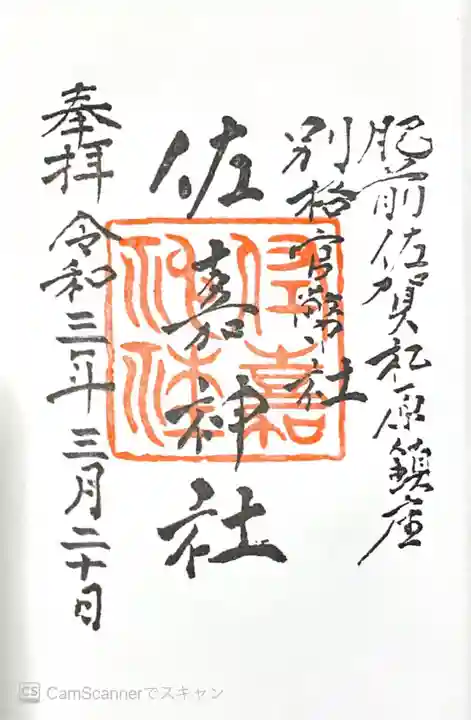 肥前佐賀松原鎮座
別格官幣社
佐嘉神社
奉拝 令和三年三月二十日
佐嘉神社
CS CamScannerでスキャン